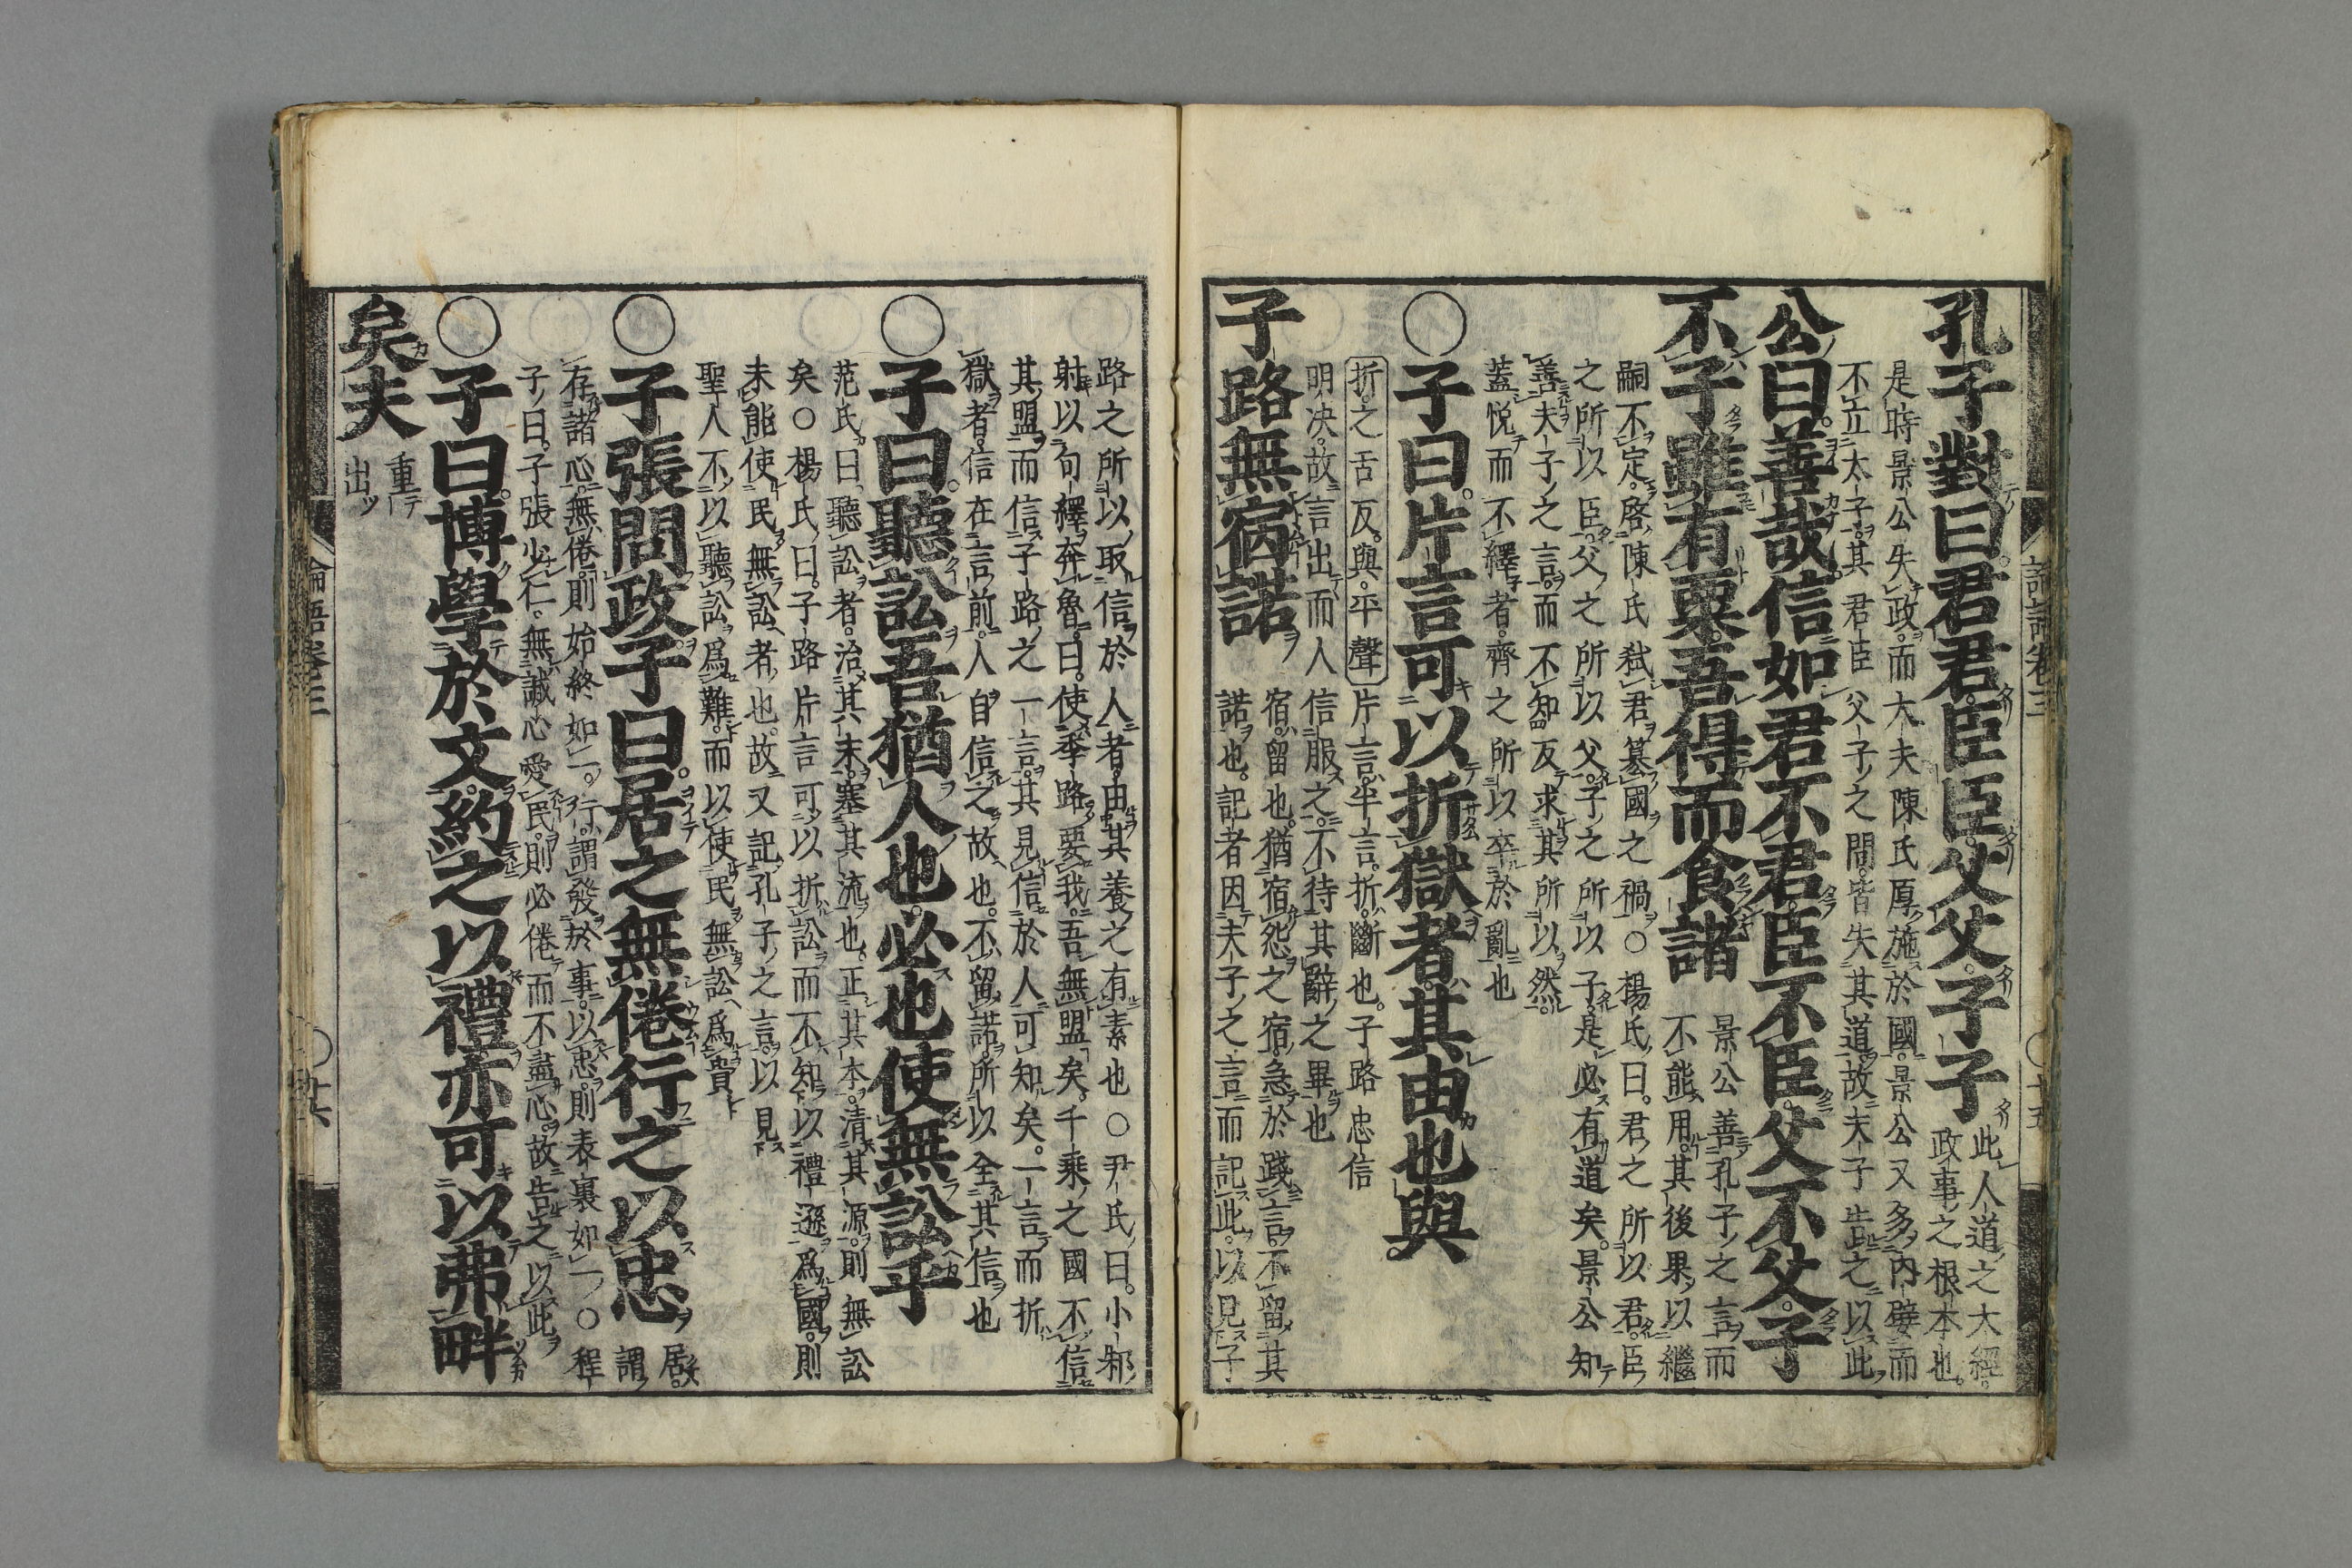 孔子對曰君君臣臣父父子子
此人道之大經
政事之根本也
是時景公失政而大夫陳氏厚施於國景公又多內嬖而
不立太子其君臣父子之間皆失其道故夫子告之以此
公曰善哉信如君不君臣不臣父不父子
不子雖有粟吾得而食諸
景公善孔子之言而
不能用其後果以繼
嗣不定啓陳氏弑君簒國之禍○楊氏曰君之所以君臣
之所以臣父之所以父子之所以子是必有道矣景公知
善夫子之言而不知反求其所以然
蓋悅而不繹者齊之所以卒於亂也
○子曰片言可以折獄者其由也與
折之舌反與平聲
片言半言折斷也子路忠信
明决故言出而人信服之不待其辭之畢也
子路無宿諾
宿留也猶宿怨之宿急於踐言不留其
諾也記者因夫子之言而記此以見子
論語卷三
○十五
路之所以取信於人者由其養之有素也○尹氏曰小邾
射以句繹奔魯曰使季路要我吾無盟矣千乘之國不信
其盟而信子路之一言其見信於人可知矣一言而折
獄者信在言前人自信之故也不留諾所以全其信也
○子曰聽訟吾猶人也必也使無訟乎
范氏曰聽訟者治其末塞其流也正其本清其源則無訟
矣○楊氏曰子路片言可以折訟而不知以禮遜爲國則
未能使民無訟者也故又記孔子之言以見
聖人不以聽訟爲難而以使民無訟爲貴
○子張問政子曰居之無倦行之以忠
居
謂
存諸心無倦則始終如一行謂發於事以忠則表裏如一○程
子曰子張少仁無誠心愛民則必倦而不盡心故告之以此
○子曰博學於文約之以禮亦可以弗畔
矣夫
重
出
論語卷三
○十六